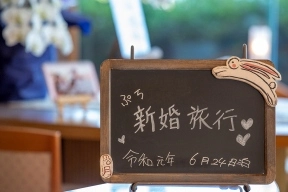 ぷち
新婚旅行
令和元年 6月24日